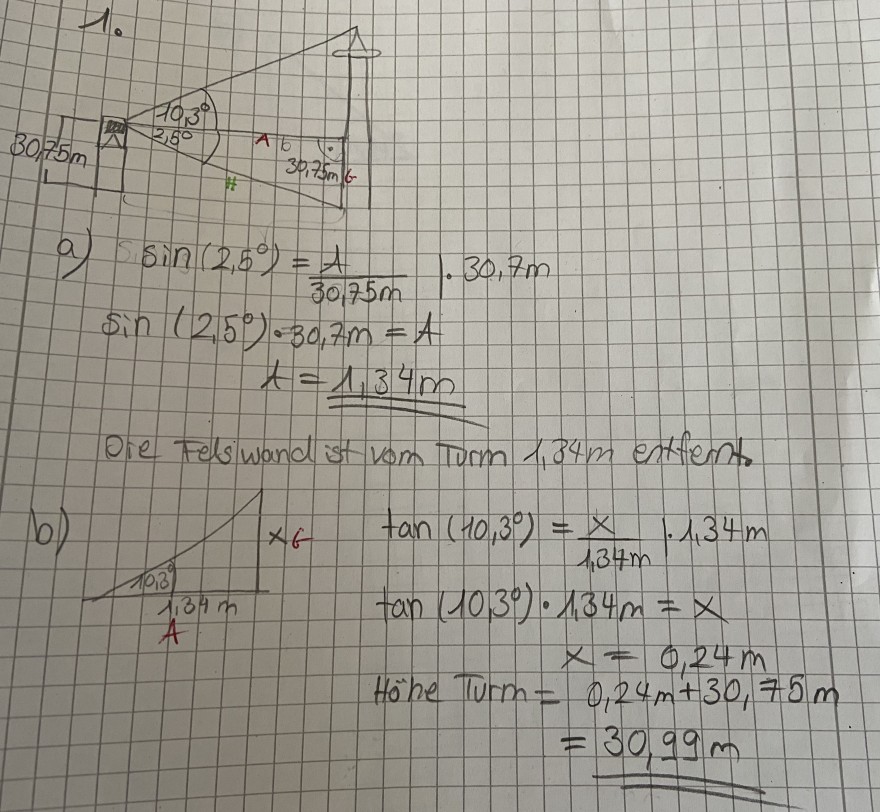 1.
10,3°
2,5°
A b
30,75m
30,75m G
H
a) sin (2,5°) = A / 30,75m | · 30,7m
sin (2,5°) · 30,7m = A
A = 1,34m
Die Felswand ist vom Turm 1,34m entfernt.
b)
x G
10,3°
1,34 m
A
tan (10,3°) = x / 1,34m | · 1,34m
tan (10,3°) · 1,34m = x
x = 0,24m
Höhe Turm = 0,24m + 30,75m
= 30,99m